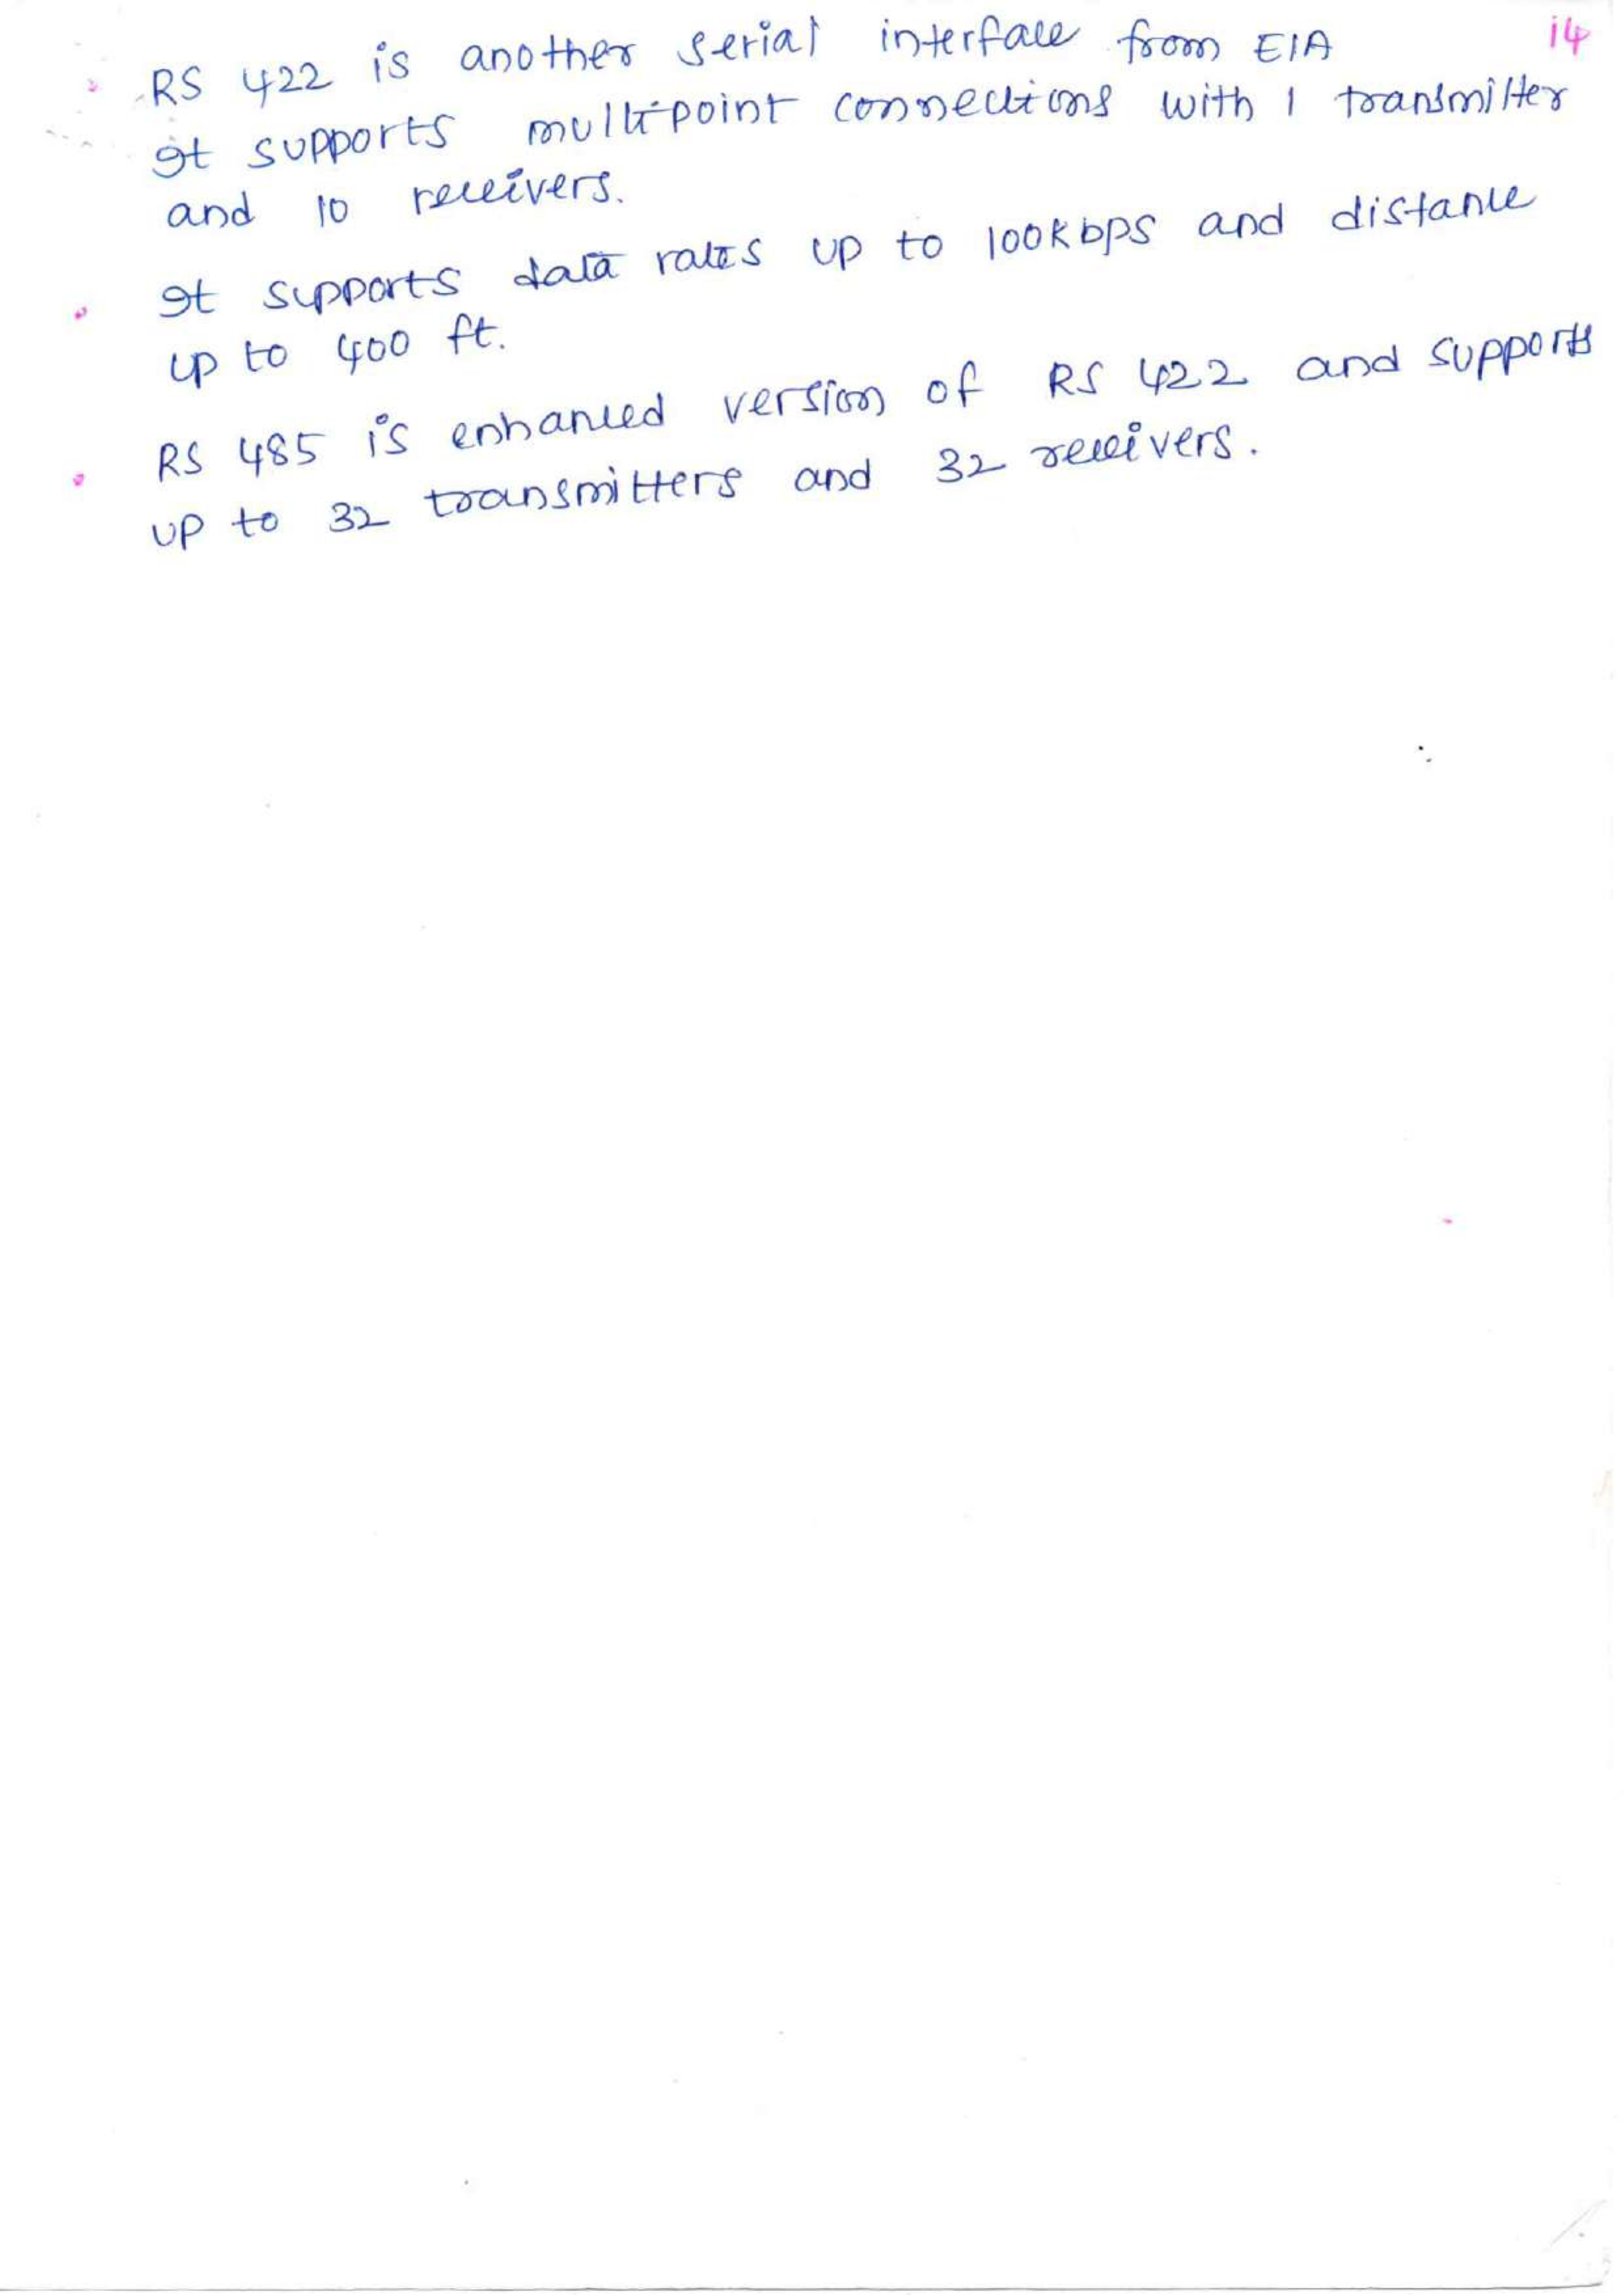 14
RS 422 is another serial interface from EIA
It supports multi-point connections with 1 transmitter
and 10 receivers.
It supports data rates up to 100kbps and distance
up to 400 ft.
RS 485 is enhanced version of RS 422 and supports
up to 32 transmitters and 32 receivers.